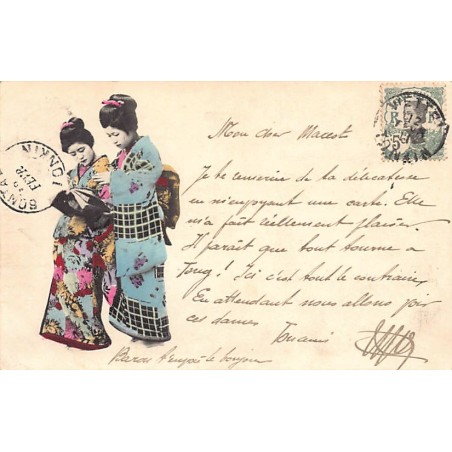 Mon cher Macost
Je te remercie de la délicatesse
en m'envoyant une carte. Elle
m'a fait réellement plaisir.
Il paraît que tout tourne à
! Ici c'est tout le contraire
En attendant nous allons voir
ces dames Ton ami
t'envoie le bonjour
TONKIN